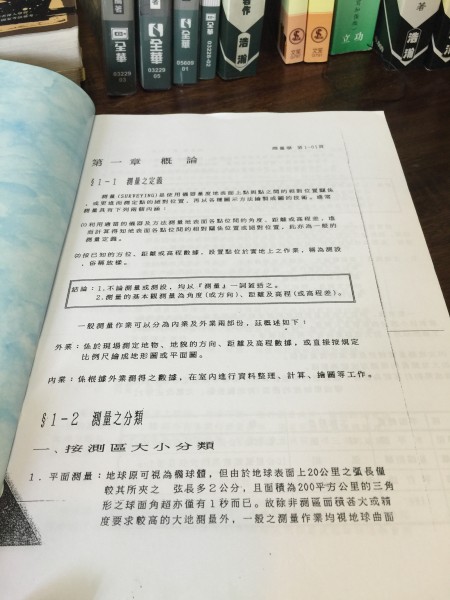 華古
03220
03
華古
05600
01
浩瀚
文笙
文笙
立功
著
測量學 第1-01頁
第一章 概論
§1-1 測量之定義
測量(SURVEYING)是使用儀器量度地表面上點與點之間的相對位置關係
，或更進而測定點的絕對位置，再以各種圖示方法繪製成圖的技術。通常
測量具有下列兩種內涵：
⑴利用適當的儀器及方法測量地表面各點位間的角度、距離或高程差，進
而計算得知地表面各點位間的相對關係位置或絕對位置，此亦為一般的
測量定義。
⑵按已知的方位、距離或高程數據，設置點位於實地上之作業，稱為測設
，俗稱放樣。
結論：1.不論測量或測設，均以『測量』一詞概括之。
2.測量的基本觀測量為角度(或方向)、距離及高程(或高程差)。
一般測量作業可以分為內業及外業兩部份，茲概述如下：
外業：係於現場測定地物、地貌的方向、距離及高程數據，或直接按規定
比例尺繪成地形圖或平面圖。
內業：係根據外業測得之數據，在室內進行資料整理、計算、繪圖等工作。
§1-2 測量之分類
一、按測區大小分類
1.平面測量：地球原可視為橢球體，但由於地球表面上20公里之弧長僅
較其所夾之 弦長多2公分，且面積為200平方公里的三角
形之球面角超亦僅有1秒而已。故除非測區面積甚大或精
度要求較高的大地測量外，一般之測量作業均視地球曲面